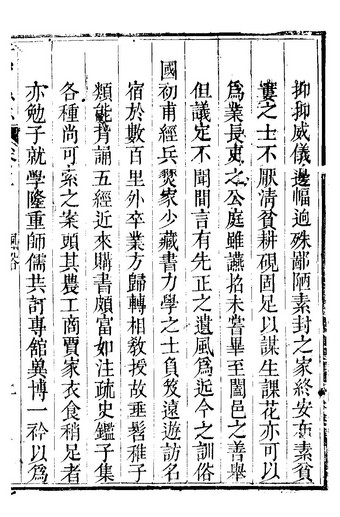 抑抑威儀邊幅逈殊鄙陋素封之家終安布素貧
窶之士不厭清貧耕硯固足以謀生課花亦可以
爲業長吏之公庭雖讌招未嘗畢至闔邑之善舉
但議定不聞間言有先正之遺風爲近今之訓俗
國初甫經兵燹家少藏書力學之士負笈遠遊訪名
宿於數百里外卒業方歸轉相敎授故垂髫稚子
類能背誦五經近來購書頗富如注疏史鑑子集
各種尚可索之案頭其農工商賈家衣食稍足者
亦勉子就學隆重師儒共訂專館兾博一衿以爲
風俗